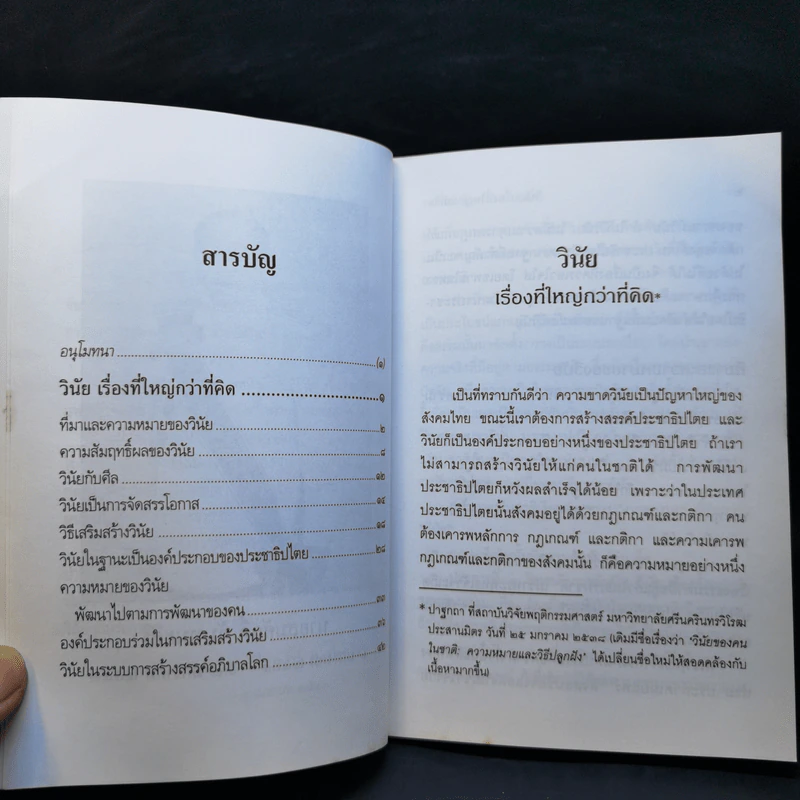 สารบัญ
อนุโมทนา ............ (๑)
วินัย เรื่องที่ใหญ่กว่าที่คิด ............ ๑
ที่มาและความหมายของวินัย ............ ๒
ความสัมฤทธิ์ผลของวินัย ............ ๘
วินัยกับศีล ............ ๑๒
วินัยเป็นการจัดสรรโอกาส ............ ๑๔
วิธีเสริมสร้างวินัย ............ ๑๘
วินัยในฐานะเป็นองค์ประกอบของประชาธิปไตย ............ ๒๘
ความหมายของวินัย
พัฒนาไปตามการพัฒนาของคน ............ ๓๓
องค์ประกอบร่วมในการเสริมสร้างวินัย ............ ๓๘
วินัยในระบบการสร้างสรรค์อภิบาลโลก ............ ๔๒
วินัย
เรื่องที่ใหญ่กว่าที่คิด*
เป็นที่ทราบกันดีว่า ความขาดวินัยเป็นปัญหาใหญ่ของ
สังคมไทย ขณะนี้เราต้องการสร้างสรรค์ประชาธิปไตย และ
วินัยก็เป็นองค์ประกอบอย่างหนึ่งของประชาธิปไตย ถ้าเรา
ไม่สามารถสร้างวินัยให้แก่คนในชาติได้ การพัฒนา
ประชาธิปไตยก็หวังผลสำเร็จได้น้อย เพราะว่าในประเทศ
ประชาธิปไตยนั้นสังคมอยู่ได้ด้วยกฎเกณฑ์และกติกา คน
ต้องเคารพหลักการ กฎเกณฑ์ และกติกา และความเคารพ
กฎเกณฑ์และกติกาของสังคมนั้น ก็คือความหมายอย่างหนึ่ง
* ปาฐกถา ที่สถาบันวิจัยพฤติกรรมศาสตร์ มหาวิทยาลัยศรีนครินทรวิโรฒ
ประสานมิตร วันที่ ๒๕ มกราคม ๒๕๓๘ (เดิมมีชื่อเรื่องว่า 'วินัยของคน
ในชาติ: ความหมายและวิธีปลูกฝัง' ได้เปลี่ยนชื่อใหม่ให้สอดคล้องกับ
เนื้อหามากขึ้น)